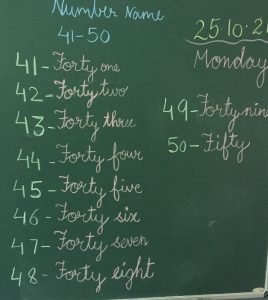 Number Name
41-50
41-Forty one
42-Forty two
43-Forty three
44-Forty four
45-Forty five
46-Forty six
47-Forty seven
48-Forty eight
25.10.21
Monday
49-Forty nine
50-Fifty